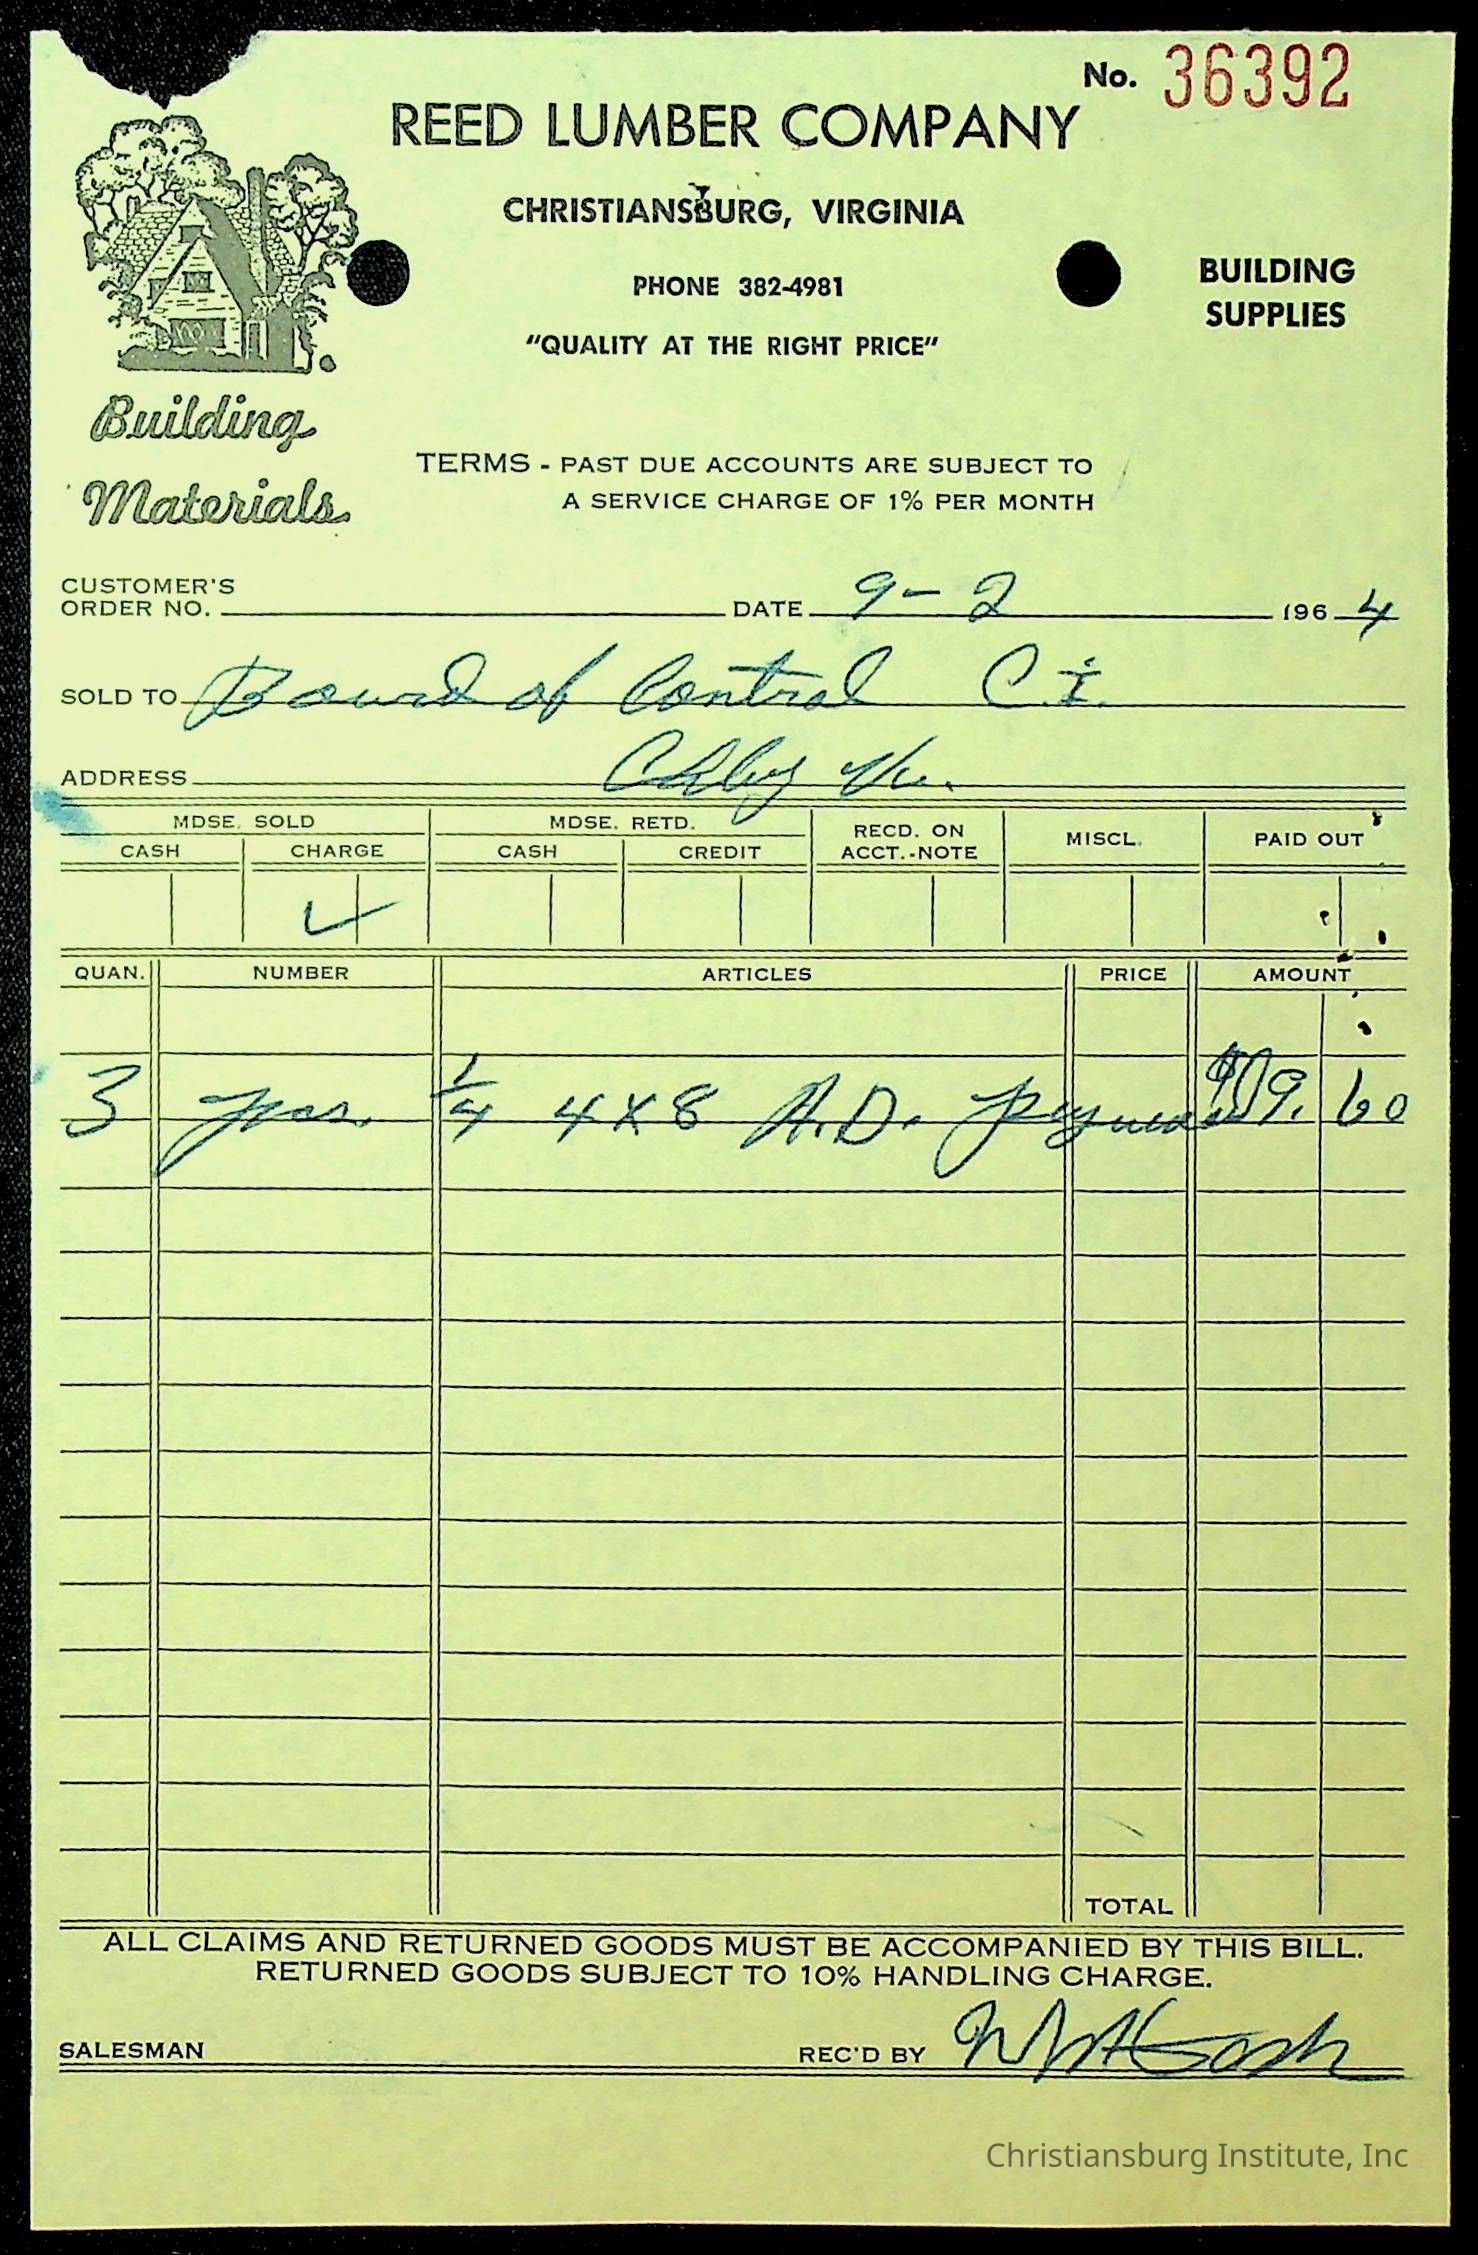 No. 36392
REED LUMBER COMPANY
CHRISTIANSBURG, VIRGINIA
PHONE 382-4981
BUILDING
SUPPLIES
"QUALITY AT THE RIGHT PRICE"
Building
Materials
TERMS - PAST DUE ACCOUNTS ARE SUBJECT TO
A SERVICE CHARGE OF 1% PER MONTH
CUSTOMER'S
ORDER NO. DATE 9-2 1964
SOLD TO Board of Control C.I.
ADDRESS Va.
MDSE. SOLD MDSE. RETD. RECD. ON ACCT.-NOTE MISCL. PAID OUT
CASH CHARGE CASH CREDIT
✓
QUAN. NUMBER ARTICLES PRICE AMOUNT
3 pcs. 1/4 4x8 A.D. 9.60
TOTAL
ALL CLAIMS AND RETURNED GOODS MUST BE ACCOMPANIED BY THIS BILL.
RETURNED GOODS SUBJECT TO 10% HANDLING CHARGE.
SALESMAN REC'D BY
Christiansburg Institute, Inc